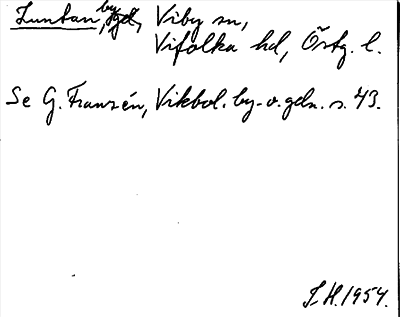 Luntan, by, Viby sn,
Vifolka hd, Östg. l.
Se G. Franzén, Vikbol. by- o. gdn. s. 43.
S. H. 1954.